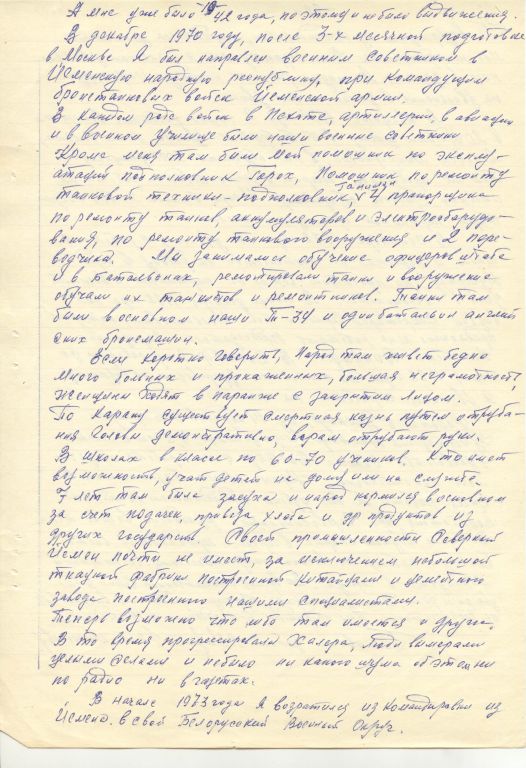 А мне уже было 42 года, поэтому и небыло выдвижения.
В декабре 1970 году, после 3-х месячной подготовке
в Москве Я был направлен военным советником в
Йеменскую народную республику, при Командующим
бронетанковых войск Йеменской армии.
В каждом роде войск в Пехоте, артиллерии, в авиации
и в военном училище были наши военные советники
Кроме меня там были мой помошник по эксплу-
атации подполковник Горох, Помошник по ремонту
танковой техники - подполковник, 4 прапорщика
по ремонту танков, аккумуляторов и электрооборудо-
вания, по ремонту танкового вооружения и 2 пере-
водчика. Мы занимались обучение офицеров штаба
и в баталионах, ремонтировали танки и вооружение
обучали их танкистов и ремонтников. Танки там
были в основном наши Т-34 и один батальон англий
ских бронемашин.
Если коротко говорить, Народ там живет бедно
много больных и прокаженных, большая неграмотность,
Женщины ходят в парандже с закрытым лицом.
По Карану существует смертная казнь путем отруба-
ния головы демонстративно, ворам отрубают руки.
В школах в классе по 60-70 учеников. Кто имеет
возможность, учат детей на дому или на службе.
7 лет там была засуха и народ кормился в основном
за счет подачек, привоза хлеба и др продуктов из
других государств. Своей промышленности Северный
Йемен почти не имеет, за исключением небольшой
ткацкой фабрики построенной Китайцами и цементного
завода построенного нашими специалистами.
Теперь возможно что либо там имеется и другие.
В то время прогрессировала Халера, люди вымирали
целыми селами и небыло ни какого шума об этом ни
по радио ни в газетах.
В начале 1973 года Я возратился из командировки из
Йемена в свой Белорусский Военный Округ.